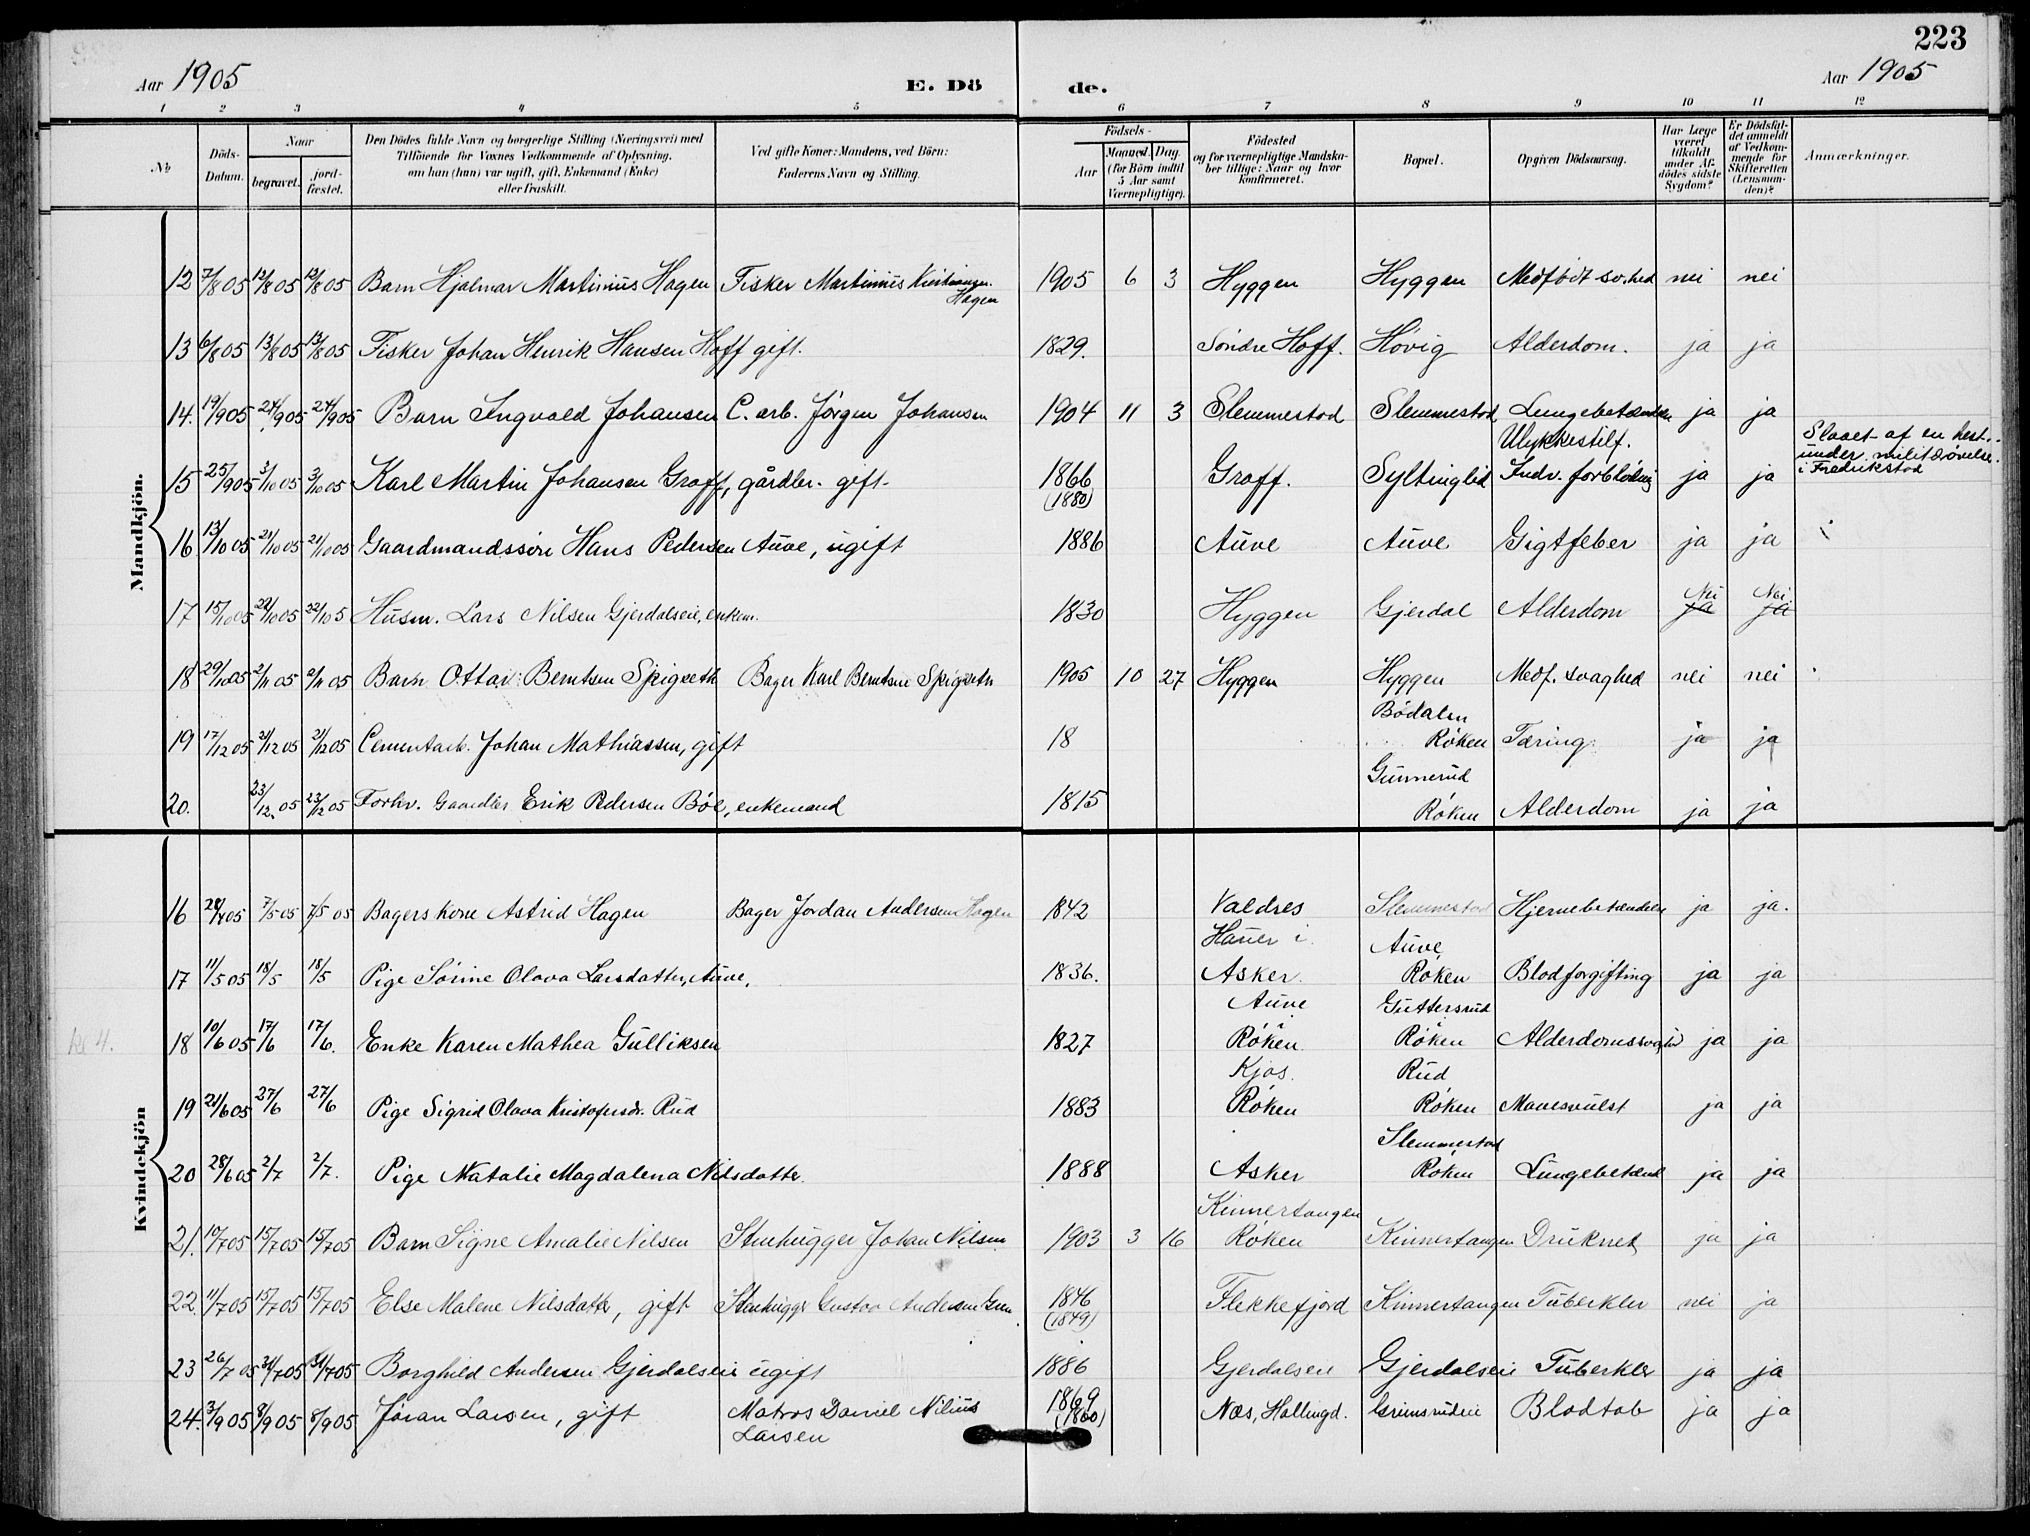 223
Aar 1905
E. Döde.
Aar 1905
1 2 3 4 5 6 7 8 9 10 11 12
No
Döds-Datum.
Naar
begravet.
jord-fæstet.
Den Dödes fulde Navn og borgerlige Stilling (Næringsvei) med
Tilföiende for Voxnes Vedkommende af Oplysning,
om han (hun) var ugift, gift, Enkemand (Enke)
eller fraskilt.
Ved gifte Koner: Mandens, ved Börn:
Faderens Navn og Stilling.
Födsels-
Aar
Maaned. Dag.
(for Börn indtil 5 Aar samt Værnepligtige).
Födested
og for værnepligtige Mandskaber tillige: Naar og hvor konfirmeret.
Bopæl.
Opgiven Dödsaarsag.
Har Læge været tilkaldt under Afdödes sidste Sygdom?
Er Dödsfaldet anmeldt af Vedkommende for Skifteretten (Lensmanden)?
Anmærkninger.
Mandkjön.
12 7/8 05 12/8 05 12/8 05 Barn Hjalmar Martinius Hagen Fisker Martinius Kristiansen Hagen 1905 6 3 Hyggen Hyggen Medfødt sv.hed nei nei
13 6/8 05 13/8 05 13/8 05 Fisker Johan Henrik Hansen Hoff gift. 1829. Søndre Hoff. Høvig Alderdom. ja ja
14. 19/9 05 24/9 05 24/9 05 Barn Ingvald Johansen C. arb. Jørgen Johansen 1904 11 3 Slemmestad Slemmestad Lungebetændelse ja ja
15 25/9 05 3/10 05 3/10 05 Karl Martin Johansen Graff, gårdbr. gift. 1866 (1880) Graff. Syltinglid Ulykkestilf. Indv. forblødnig ja ja Slaaet af en hest under militærøvelse i Fredrikstad
16 13/10 05 21/10 05 21/10 05 Gaardmandssøn Hans Pedersen Auve, ugift 1886 Auve Auve Gigtfeber ja ja
17 15/10 05 22/10 05 22/10 5 Husm. Lars Nilsen Gjerdalseie, enkem. 1830 Hyggen Gjerdal Alderdom Nei ja Nei. ja
18 29/10 05 2/11 05 2/11 05 Barn Ottar Berntsen Spigseth Bager Karl Berntsen Spigseth 1905 10 27 Hyggen Hyggen Medf. svaghed nei nei
19 17/12 05 21/12 05 21/12 05 Cementarb. Johan Mathiassen, gift 18 Bødalen Røken Tæring ja ja
20. 23/12. 05 23/12 05 Forhv. Gaardbr Erik Pedersen Bøe, enkemand 1815 Gunnerud Røken Alderdom ja ja
Kvindekjön
16 28/4 05 7/5 05 7/5 05 Bagers kone Astrid Hagen Bager Jordan Andersen Hagen 1842 Valdres Slemmestad Hjernebetændelse ja ja.
17 11/5 05 18/5 18/5 Pige Sørine Olava Larsdatter, Auve, 1836. Hauer i Asker. Auve, Røken Blodforgiftning ja ja
kl 4.
18 10/6 05 17/6 17/6. Enke Karen Mathea Gulliksen 1827 Auve Røken Guttersrud Røken Alderdomssvagh ja ja
19 21/6 05 27/6 27/6 Pige Sigrid Olava Kristofersdr. Rud 1883 Kjos. Røken Rud Røken Mavesvulst ja ja
20 28/6 05 2/7 2/7. Pige Natalie Magdalena Nilsdatter. 1888 Asker Slemmestad Røken Lungebetænd ja ja
21. 10/7 05 15/7 05 15/7 05 Barn Signe Amalie Nilsen Stenhugger Johan Nilsen 1903 3 16 Kinnertangen Røken Kinnertangen Druknet ja ja
22. 11/7 05 15/7 05 15/7 05 Else Malene Nilsdatter, gift Stenhugger Gustav Andersen 1846 (1849) Flekkefjord Kinnertangen Tuberkler nei ja
23 26/7 05 31/7 05 31/7 05 Borghild Andersen Gjerdalseie ugift 1886 Gjerdalseie Gjerdalseie Tuberkler ja ja
24. 3/9 05 8/9 05 8/9 05 Jøran Larsen, gift Matros Daniel Nilius Larsen 1869 (1860) Næs, Hallingd. Grimsrudeie Blodtab ja ja